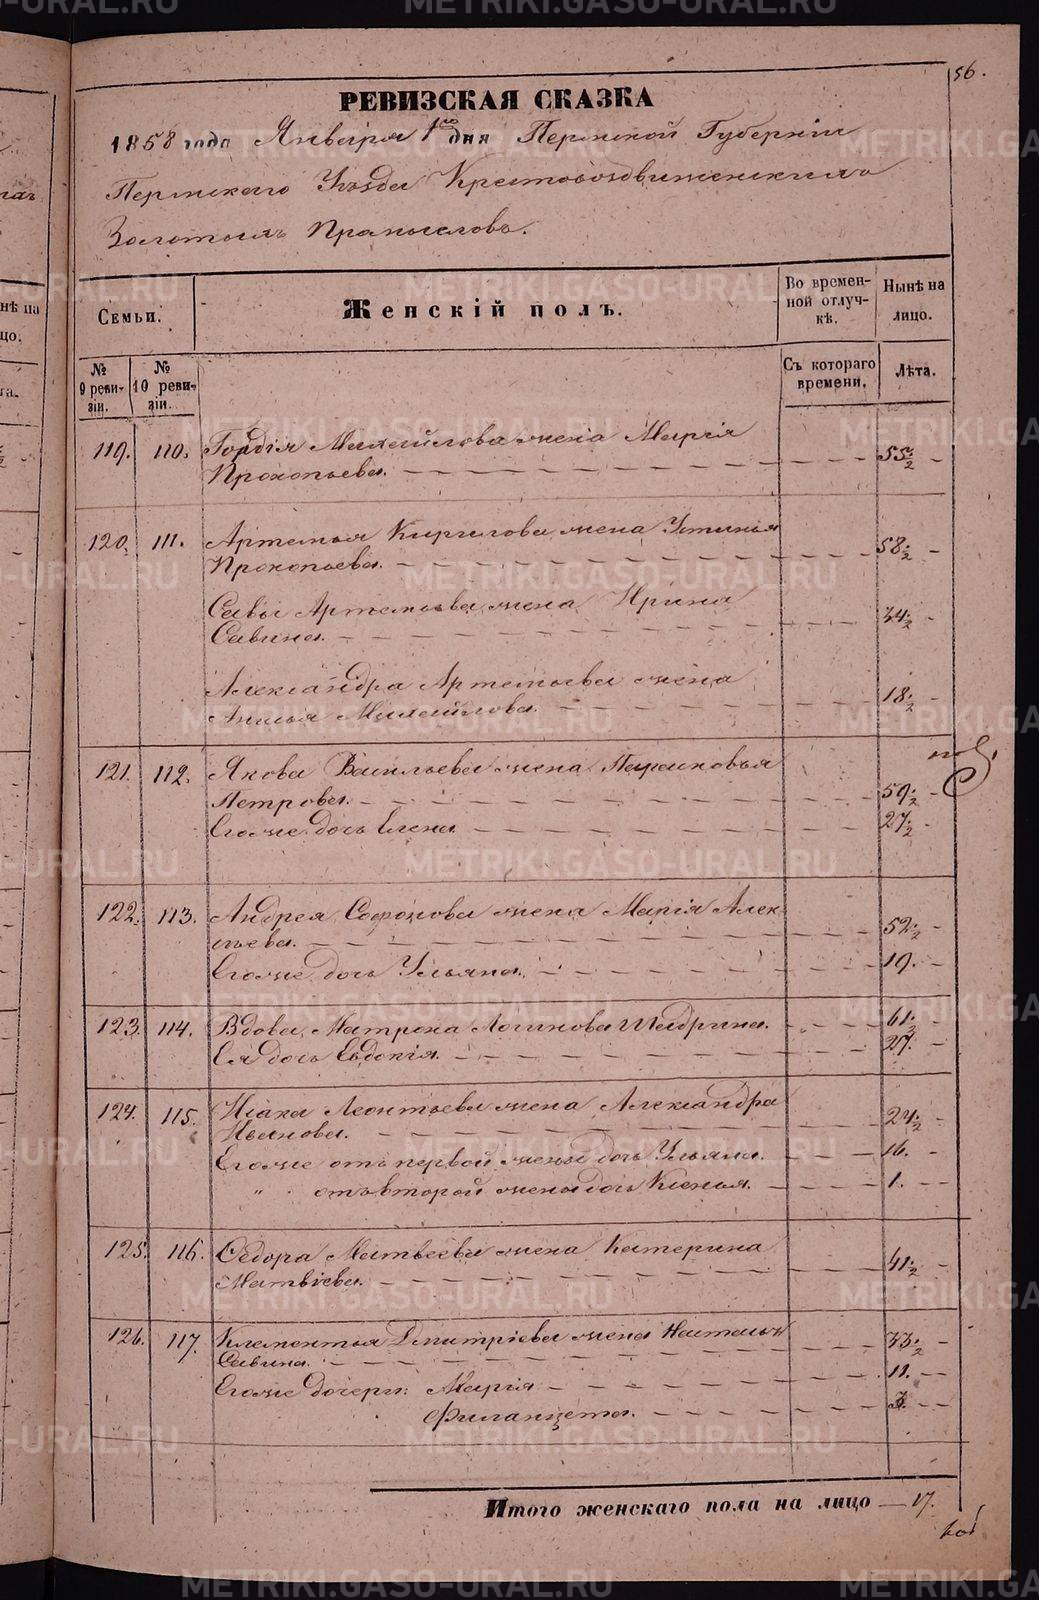 56.
РЕВИЗСКАЯ СКАЗКА
1858 года Января 1го дня Пермской Губернiи
Пермскаго Уѣзда Крестовоздвиженскимъ
Золотымъ Промысловъ.
Семьи.
Женскiй полъ.
Во времен-
ной отлуч-
кѣ.
Нынѣ на
лицо.
№
9 реви-
зiи.
№
10 реви-
зiи.
Съ котораго
времени.
Лѣта.
119. 110. Гордiя Михайлова жена Марiя
Прокопьева. 55½
120. 111. Артемья Кирилова жена Устинья
Прокопьева. 58½
Савы Артемьева жена Ирина
Савина. 34½
Александра Артемьева жена
Анисья Михайлова. 18½
121. 112. Якова Васильева жена Парасковья
Петрова. 59½
Егоже дочь Елена 27½
122. 113. Андрея Софонова жена Марiя Алек-
сѣева. 52½
Егоже дочь Ульяна. 19.
123. 114. Вдова Матрона Логинова Шадрина. 61½
Ея дочь Евдокiя. 27.
124. 115. Исака Леонтьева жена Александра
Иванова. 24½
Егоже отъ первой жены дочь Ульяна. 16.
„ отъ второй жены дочь Ксенья. 1.
125. 116. Ѳедора Матвѣева жена Катерина
Матвiева. 41½
126. 117. Клементья Дмитрiева жена Наталья
Савина. 33½
Егоже дочери: Марiя 11.
Филанцета. 3.
Итого женскаго пола на лицо — 17.
METRIKI.GASO-URAL.RU